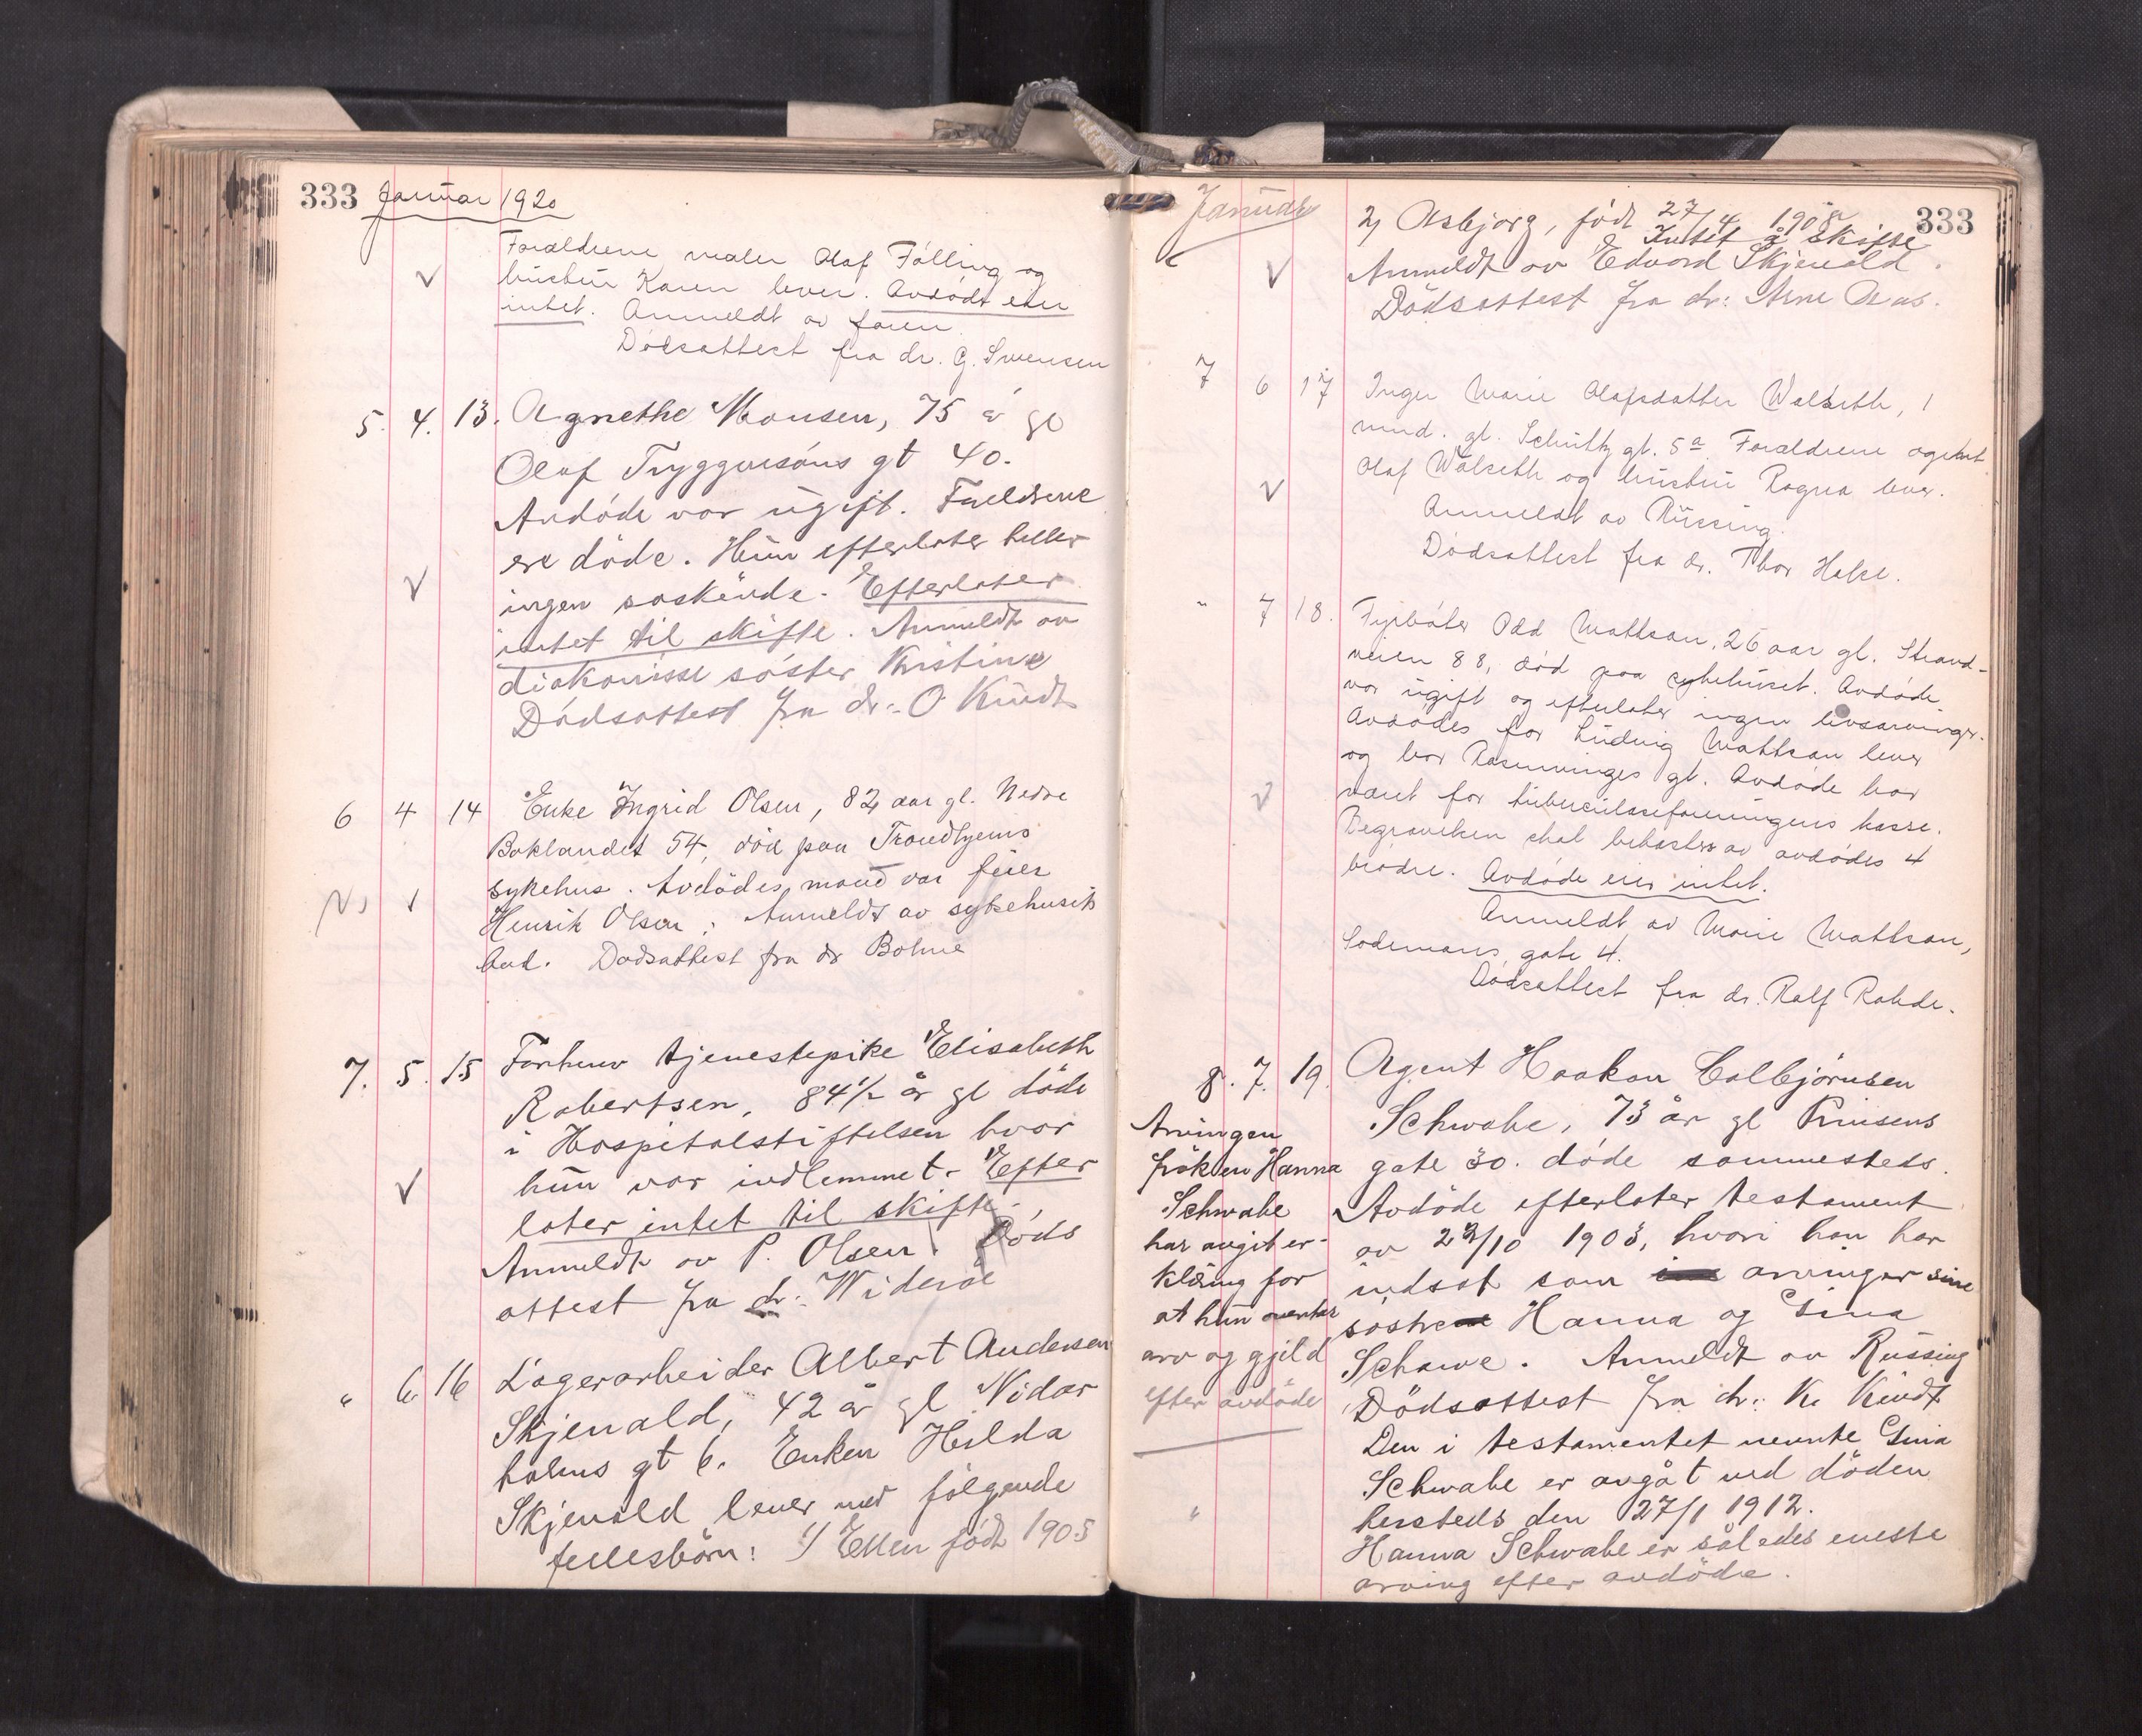 333 Januar 1920
Forældrene maler Olaf Følling og
hustru Karen lever. Avdøde eier
intet. Anmeldt av faren
Dødsattest fra dr. G. Svensen
5. 4. 13. Agnethe Monsen, 75 år gl
Olaf Tryggvesøns gt 40.
Avdøde var ugift. Foreldrene
ere døde. Hun efterlater heller
ingen søskende. Efterlater
intet til skifte. Anmeldt av
diakonisse søster Kristine
Dødsattest fra dr: O Kindt
6 4 14 Enke Ingrid Olsen, 82 aar gl. Nedre
Baklandet 54, død paa Trondhjems
sykehus. Avdødes mand var feier
Henrik Olsen. Anmeldt av sykehusets
bud. Dødsattest fra dr Bohne
7. 5. 15 Forhenv tjenestepike Elisabeth
Robertsen, 84 1/2 år gl døde
i Hospitalstiftelsen hvor
hun var indlemmet. Efter
later intet til skifte.
Anmeldt av P. Olsen. Døds
attest fra dr: Widerøe
" 6 16 Lagerarbeider Albert Andersen
Skjenald, 42 år gl Nidar
holms gt 6. Enken Hilda
Skjenald lever med følgende
fellesbørn: 1/ Ellen født 1905
Januar 333
2/ Asbjørg, født 27/4 1908
Intet å skifte
Anmeldt av Edvard Skjenald.
Dødsattest fra dr: Arne Aas.
7 6 17 Inger Marie Olafsdatter Walseth, 1
mnd. gl. Schultz gt. 5a Forældrene agent
Olaf Walseth og hustru Ragna lever.
Anmeldt av Russing.
Dødsattest fra dr. Thor Halse.
" 7 18. Fyrbøter Odd Mattsan, 26 aar gl. Strand-
veien 88, død paa sykehuset. Avdøde
var ugift og efterlater ingen livsarvinger.
Avdødes far Ludvig Mattsan lever
og bor Rosenvinges gt. Avdøde har
været for tuberculoseforeningens kasse.
Begravelsen skal bekostes av avdødes 4
brødre. Avdøde eier intet.
Anmeldt av Marie Mattsan,
Lodemans gate 4.
Dødsattest fra dr. Ralf Rohde.
8. 7. 19. Agent Haakon Colbjørnsen
Schwabe, 73 år gl Prinsens
gate 30. døde sammesteds.
Avdøde efterlater testament
av 23/10 1903, hvori han har
indsat som arvinger sine
søstre Hanna og Gina
Schawe. Anmeldt av Russing
Dødsattest fra dr: K. Kindt
Den i testamentet nevnte Gina
Schwabe er avgåt ved døden
hersteds den 27/1 1912.
Hanna Schwabe er således eneste
arving efter avdøde.
Arvingen
frøken Hanna
Schwabe
har avgit er-
klæring for
at hun overtar
arv og gjeld
efter avdøde
"